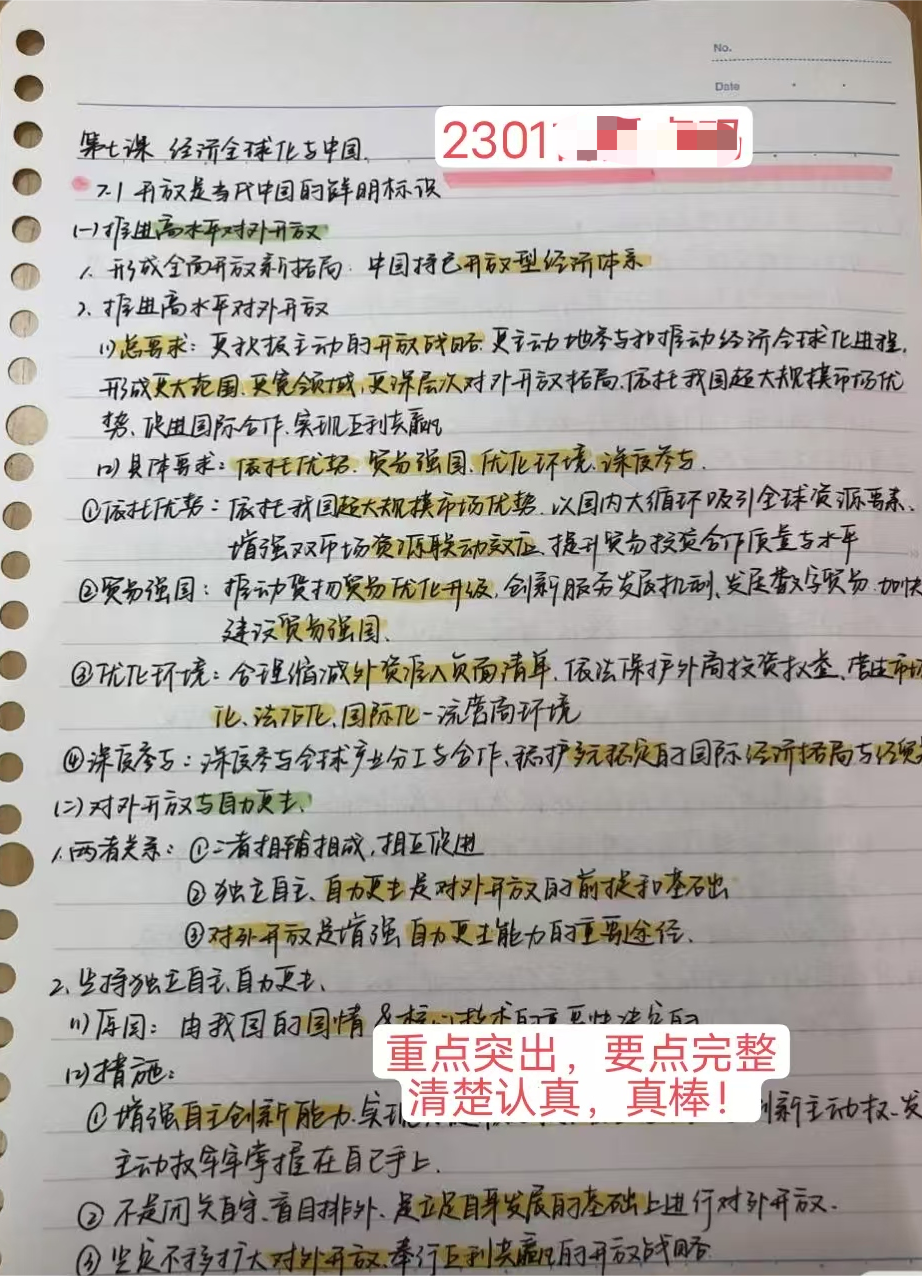 No.
Date
2301
第七课 经济全球化与中国
7.1 开放是当代中国的鲜明标识
(一)推进高水平对外开放
1. 形成全面开放新格局:中国特色开放型经济体系
2. 推进高水平对外开放
(1)总要求:更积极主动的开放战略,更主动地参与和推动经济全球化进程,
形成更大范围、更宽领域、更深层次对外开放格局,依托我国超大规模市场优
势,促进国际合作,实现互利共赢
(2)具体要求:依托优势、贸易强国、优化环境、深度参与.
①依托优势:依托我国超大规模市场优势,以国内大循环吸引全球资源要素、
增强双市场资源联动效应,提升贸易投资合作质量与水平
②贸易强国:推动货物贸易优化升级,创新服务发展机制、发展数字贸易,加快
建设贸易强国、
③优化环境:合理缩减外资准入负面清单,依法保护外商投资权益、营造市场
化、法治化、国际化一流营商环境
④深度参与:深度参与全球产业分工与合作、维护多元稳定的国际经济格局与经贸
(二)对外开放与自力更生、
1.两者关系:①二者相辅相成,相互促进
②独立自主、自力更生是对外开放的前提和基础
③对外开放是增强自力更生能力的重要途径、
2、坚持独立自主、自力更生、
(1)原因:由我国的国情&核心技术的重要性决定的
(2)措施:
重点突出,要点完整
清楚认真,真棒!
①增强自主创新能力、实现 创新主动权、发
主动权牢牢掌握在自己手上.
②不是闭关自守、盲目排外、是立足自身发展的基础上进行对外开放.
③坚定不移扩大对外开放、奉行互利共赢的开放战略